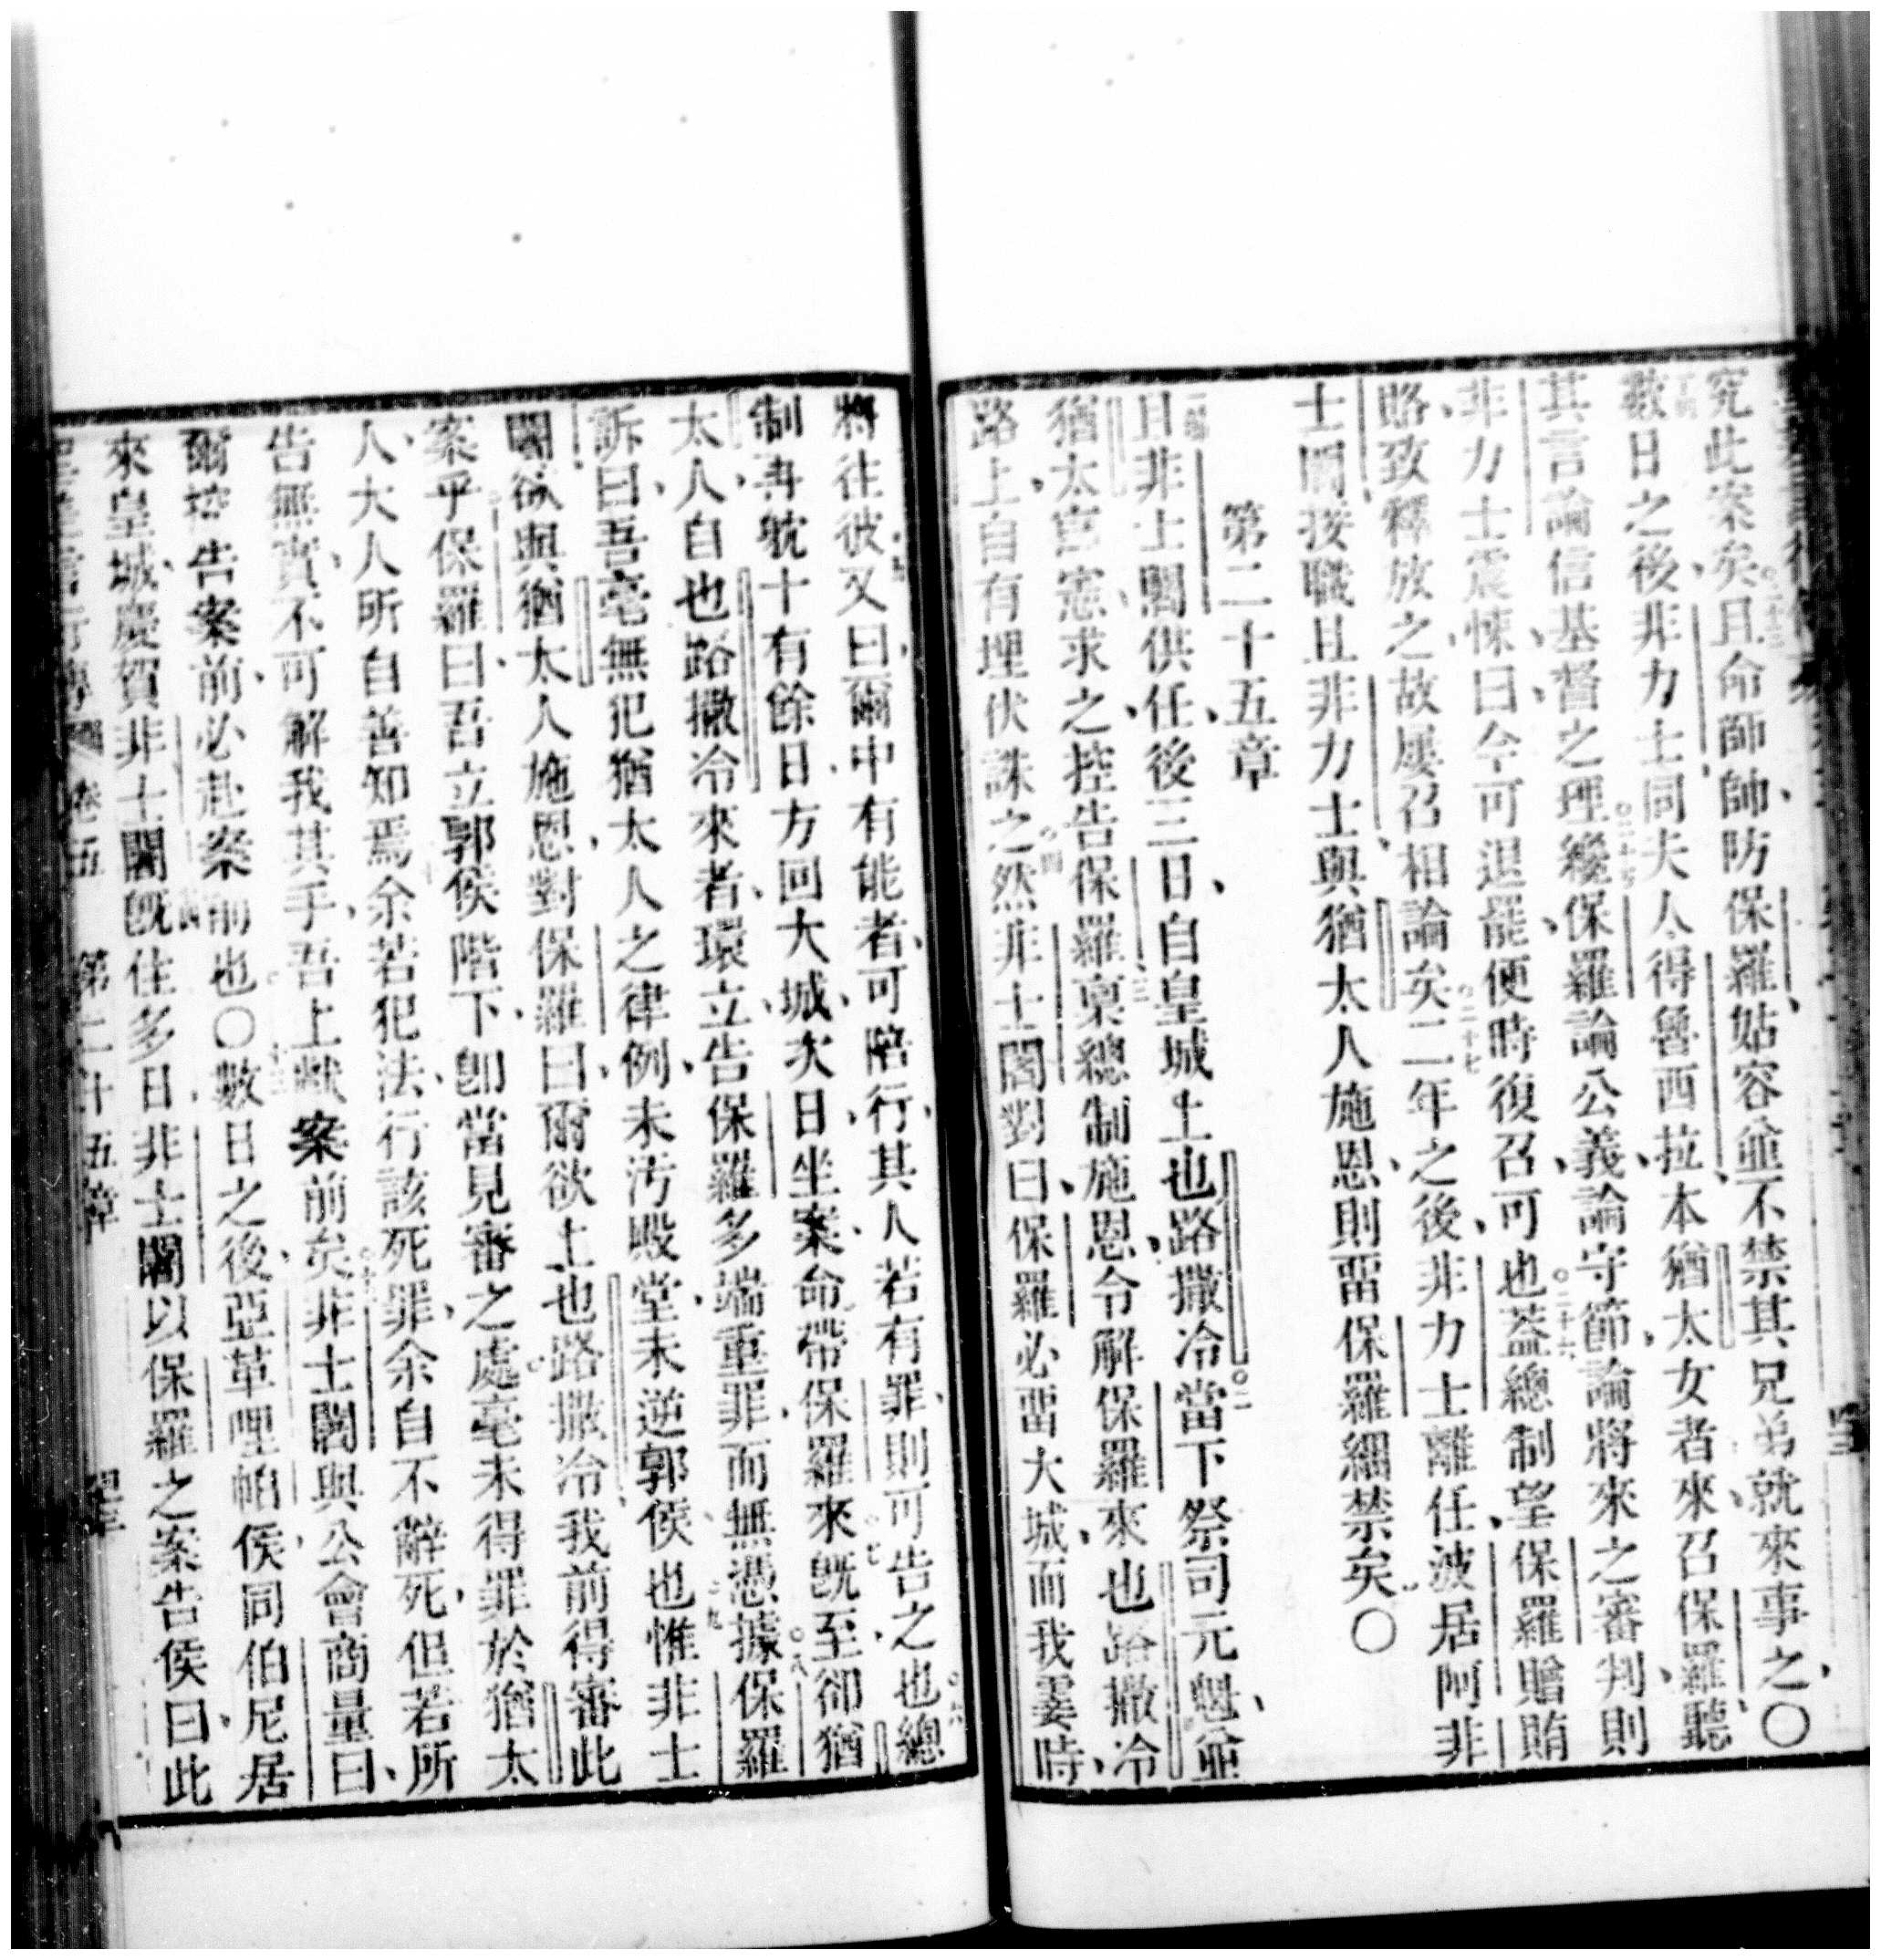 究此案矣且命師帥、防保羅、姑容並不禁其兄弟就來事之、〇
數日之後、非力士同夫人得魯西拉、本猶太女者來、召保羅、聽
其言論信基督之理纔保羅論公義論守節論將來之審判、則
非力士震悚、曰、今可退罷、便時復召可也蓋總制望保羅贈賄
賂、致釋放之、故屢召相論矣二年之後、非力士離任、波居阿非
士闍接職且非力士、與猶太人施恩、則畱保羅細禁矣〇
第二十五章
且非士闍供任、後三日、自皇城上也路撒冷當下祭司元魁、並
猶太官憲、求之、控告保羅、稟總制施恩、令解保羅來也路撒冷、
路上、自有埋伏誅之然非士闍對曰、保羅必畱大城、而我霎時、
將往彼又曰、爾中有能者、可陪行、其人若有罪、則可告之也總
制再躭十有餘日方回大城、次日、坐案、命帶保羅來既至、卻猶
太人、自也路撒冷來者、環立、告保羅多端重罪、而無憑據保羅
訴曰、吾毫無犯猶太人之律例、未汚殿堂、未逆郭侯也惟非士
闍欲與猶太人施恩、對保羅曰、爾欲上也路撒冷、我前得審此
案乎保羅曰、吾立郭侯階下、卽當見審之處毫未得罪於猶太
人、大人所自善知焉余若犯法、行該死罪、余自不辭死、但若所
告無實、不可解我其手、吾上獻案前矣非士闍與公會商量曰、
爾控告案前、必赴案前也〇數日之後、亞革哩帕侯、同伯尼居
來皇城、慶賀非士闍既住多日、非士闍以保羅之案告侯曰、此
卷五 第二十五章